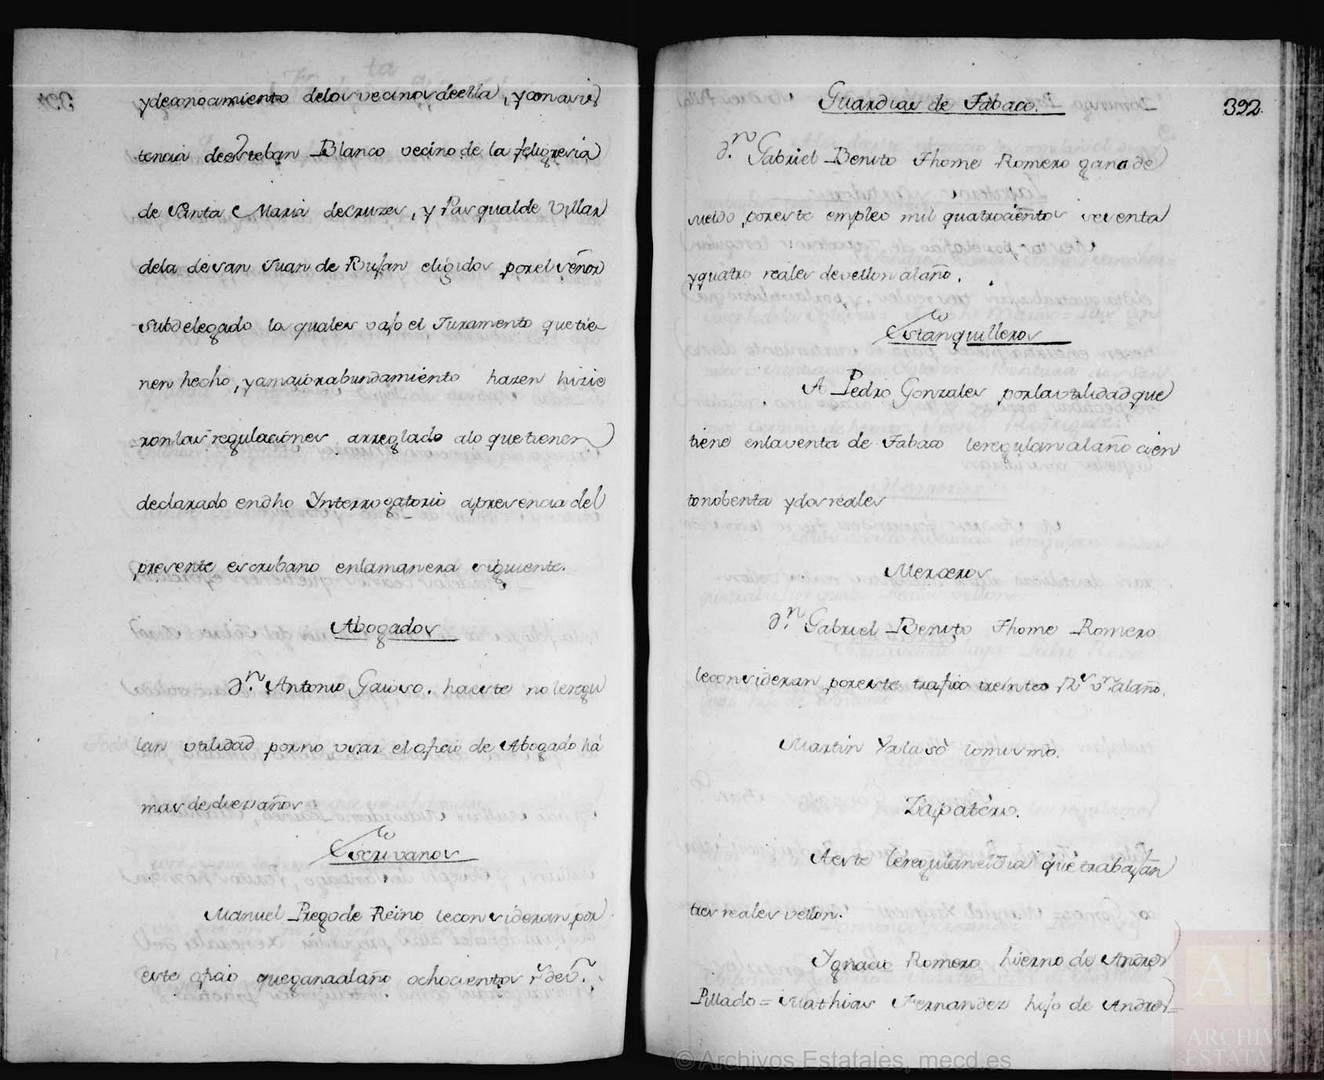 y de anoamiento delos vecinos deella, y con asis
tencia de esteban Blanco vecino de la feligresia
de Santa Maria de Cruzes, y Pasqual de Villar
dela de san Juan de Rufan eligidos por el señor
Subdelegado los quales vajo el Juramento que tie
nen hecho, y a maior abundamiento hazen hizie
ron las regulaciones arreglado alo que tienen
declarado en dho Ynterrogatorio a presencia del
presente escribano enla manera siguiente.
Abogados
Dn. Antonio Gaioso. ha este no le regu
lan utilidad por no usar el oficio de Abogado há
mas de diez años
Escrivanos
Manuel Prego de Reino le consideran por
este ofiçio que gana al año ochocientos rs de vn.
Guardias de Tabaco.
392.
Dn. Gabriel Benito Thome Romero gana de
sueldo por este empleo mil quatrocientos setenta
y quatro reales de vellon al año.
Estanquilleros
A Pedro Gonzales por la utilidad que
tiene en la venta de Tabaco le regulan al año cien
to nobenta y dos reales
Merzeros
Dn. Gabriel Benito Thome Romero
le consideran por este trafico treinta Rs vn. al año.
Martin Yalasò lo mismo.
Zapatéro.
A este le regulan el dia que trabajan
tres reales vellon.
Ygnacio Romero hierno de Andres
Pillado = Mathias Fernandez hijo de Andres
© Archivos Estatales, mecd.es
ARCHIVOS
ESTATA